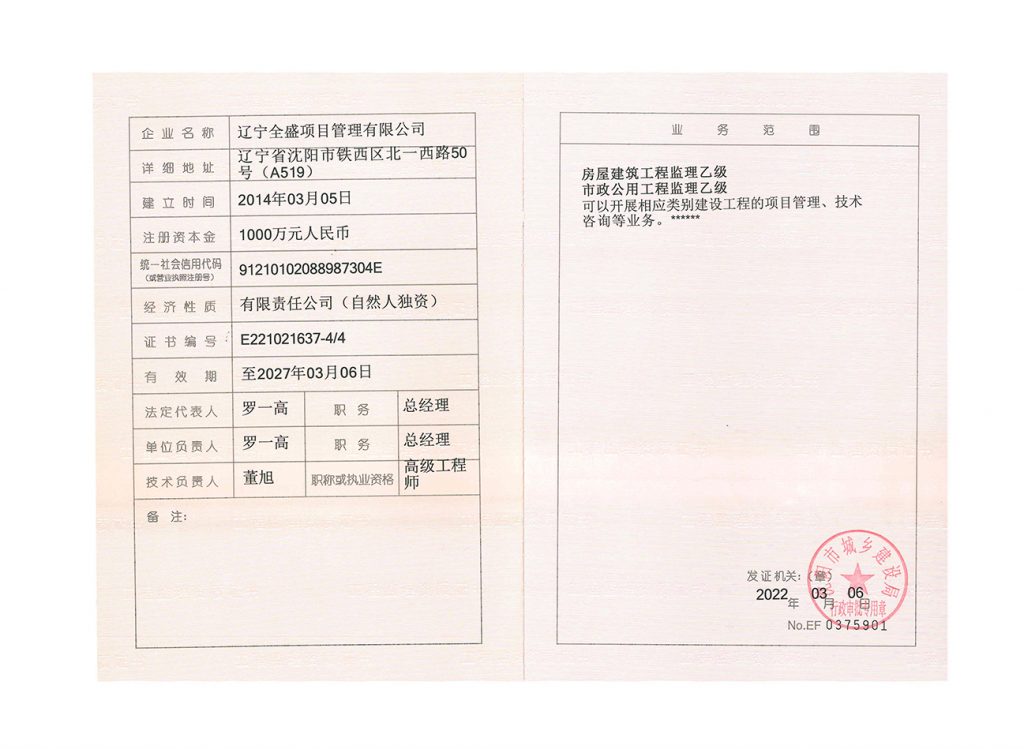 企业名称 辽宁全盛项目管理有限公司
详细地址 辽宁省沈阳市铁西区北一西路50
号（A519）
建立时间 2014年03月05日
注册资本金 1000万元人民币
统一社会信用代码
(或营业执照注册号) 91210102088987304E
经济性质 有限责任公司（自然人独资）
证书编号 E221021637-4/4
有效期 至2027年03月06日
法定代表人 罗一高 职务 总经理
单位负责人 罗一高 职务 总经理
技术负责人 董旭 职称或执业资格 高级工程
师
备注:
业务范围
房屋建筑工程监理乙级
市政公用工程监理乙级
可以开展相应类别建设工程的项目管理、技术
咨询等业务。******
沈阳市城乡建设局
行政审批专用章
发证机关:（章）
2022年03月06日
No.EF 0375901